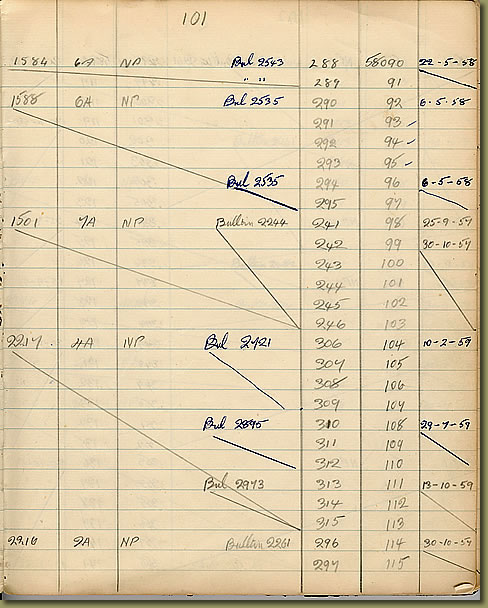 101
1584 6A NP Bul 2543 288 58090 22-5-58
" " 289 91
1585 6A NP Bul 2535 290 92 6-5-58
291 93
292 94
293 95
Bul 2535 294 96 6-5-58
295 97
1501 7A NP Bulletin 2244 241 98 25-9-57
242 99 30-10-57
243 100
244 101
245 102
246 103
2217 4A NP Bul 2721 306 104 10-2-59
307 105
308 106
309 107
Bul 2895 310 108 29-7-59
311 109
312 110
Bul 2973 313 111 13-10-59
314 112
315 113
2216 2A NP Bulletin 2261 296 114 30-10-57
297 115